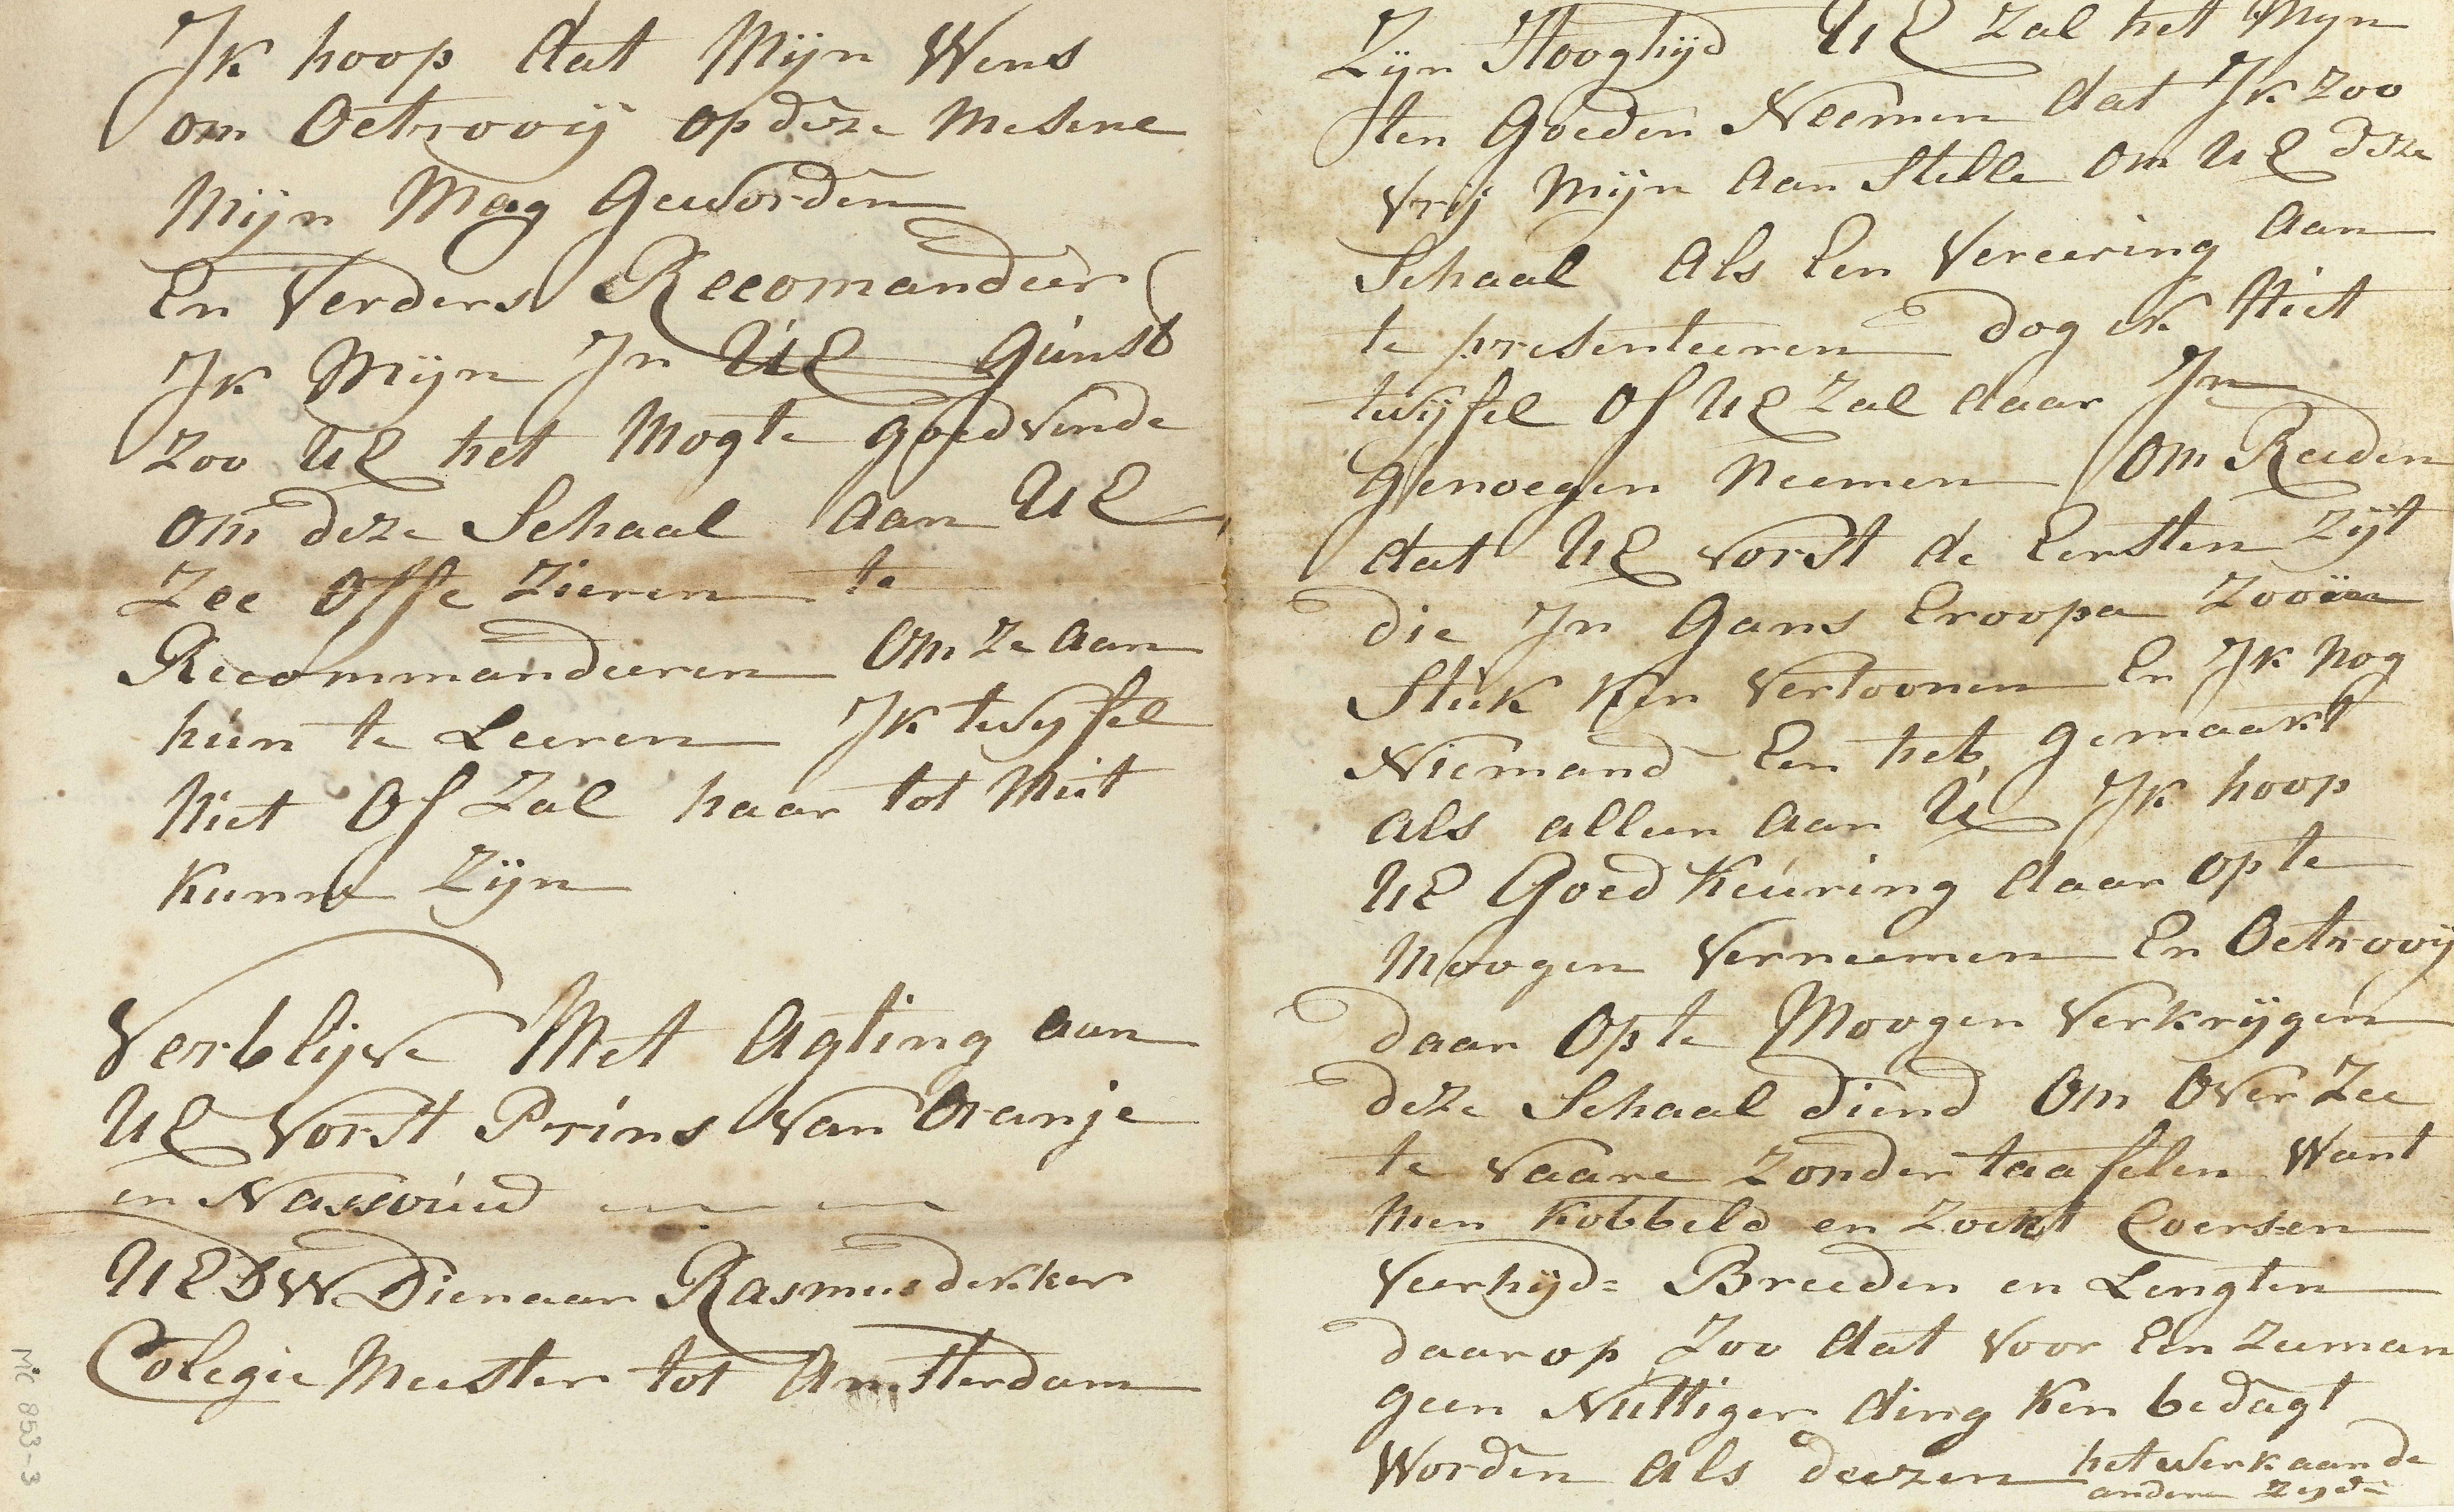 Ik hoop dat Mijn Wens
om Octrooij op deze Mesene
Mijn Mag Geworden
En Verders Recomandeer
Ik Mijn In UE Gunst
Zoo UE het Mogte goedvinde
om deze Schaal aan UE
Zee Offe Zieren te
Recommandeeren om Ze aan
hun te Leeren Ik twyfel
Niet Of Zal haar tot Nut
Kunne Zijn
Verblijve Met Agting aan
UE Vorst Prins Van Oranje
en Nassouwd
UEDW Dienaar Rasmus dekker
Colegie Meester tot Amsterdam
MC 853-3
Zijn Hooghijd UE Zal het Mijn
ten Goeden Neemen dat Ik Zoo
Vrij Mijn Aan Stelle Om UE deze
Schaal Als Een Vereering Aan
te presenteeren dog ik Niet
twijfel Of UE Zal daar In
Genoegen Neemen Om Reeden
dat UE Vorst de Eersten Zijt
die In Gans Eroopa Zooien
Stuk Ken Vertoonen En Ik Nog
Niemand Een heb gemaakt
als alleen aan U Ik hoop
UE Goed Keuring daar op te
Moogen Verneemen En Octrooij
daar Op te Moogen Verkrijgen
deze Schaal diend Om Over Zee
te Vaare Zonder taafelen Want
Men Kobbeld en Zoekt Coersen
Veerhijd= Breeden en Lengten
daar op Zoo dat Voor Een Zeeman
geen Nuttiger ding Ken bedagt
Worden als deezen het Werk aan de
andere Zijde